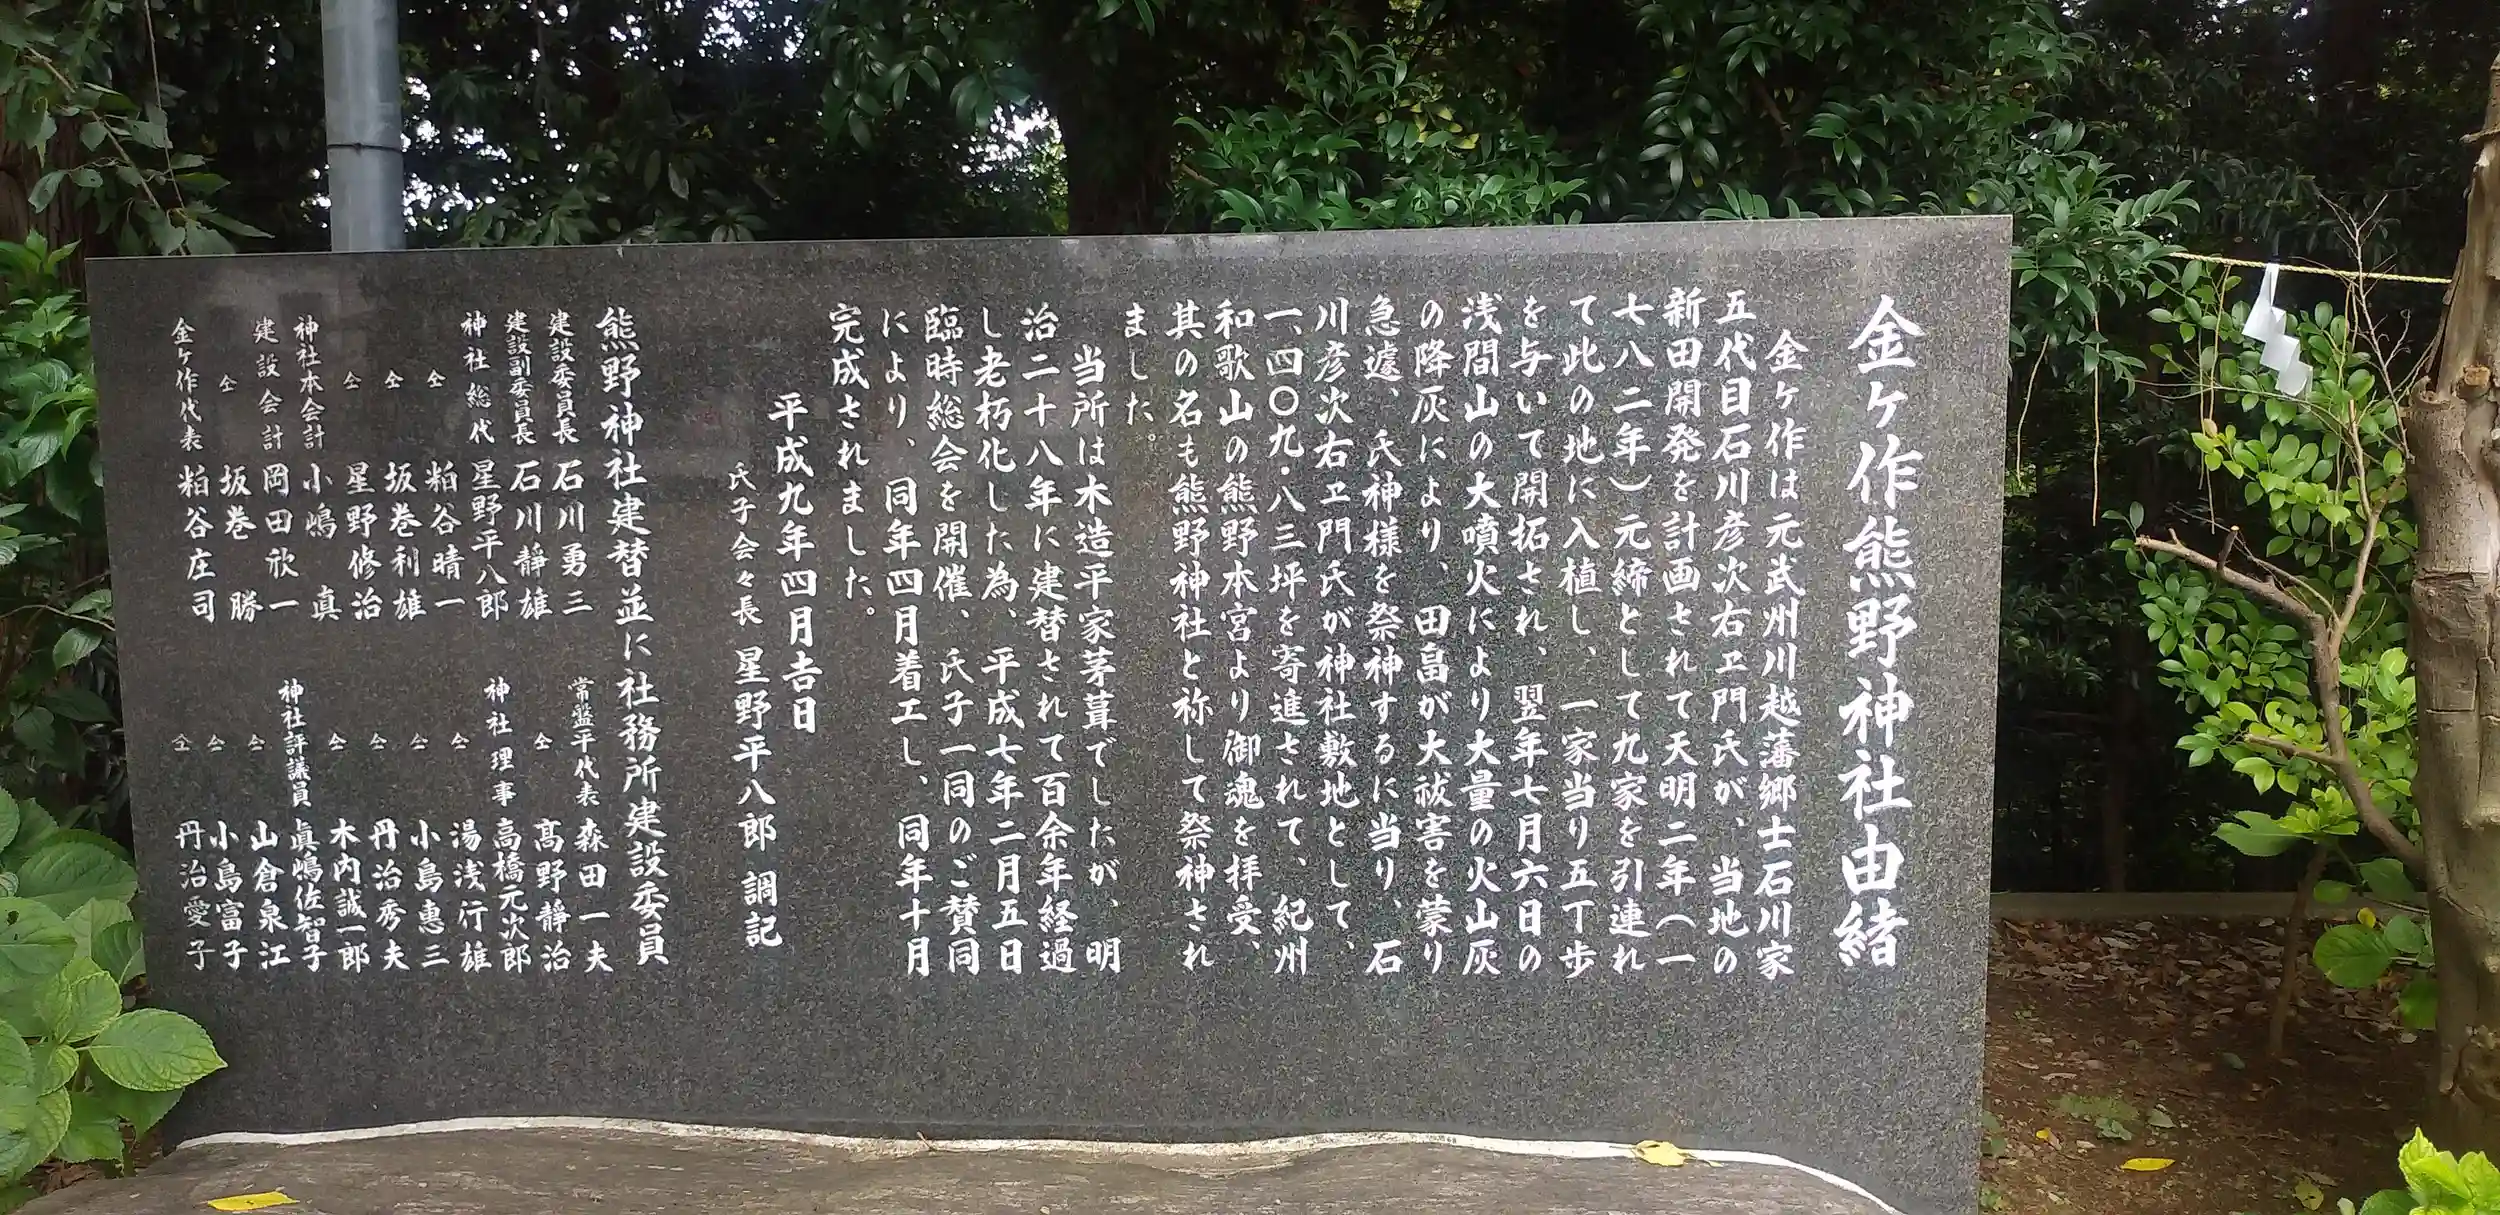 金ヶ作熊野神社由緒
金ヶ作は元武州川越藩郷士石川家
五代目石川彦次右ヱ門氏が、当地の
新田開発を計画されて天明二年(一
七八二年)元締として九家を引連れ
て此の地に入植し、一家当り五丁歩
を与いて開拓され、翌年七月六日の
浅間山の大噴火により大量の火山灰
の降灰により、田畠が大祓害を蒙り
急遽、氏神様を祭神するに当り、石
川彦次右ヱ門氏が神社敷地として、
一、四〇九・八三坪を寄進されて、紀州
和歌山の熊野本宮より御魂を拝受、
其の名も熊野神社と祢して祭神され
ました。
当所は木造平家茅葺でしたが、明
治二十八年に建替されて百余年経過
し老朽化した為、平成七年二月五日
臨時総会を開催、氏子一同のご賛同
により、同年四月着工し、同年十月
完成されました。
平成九年四月吉日
氏子会々長 星野平八郎 調記
熊野神社建替並に社務所建設委員
建設委員長 石川勇三
建設副委員長 石川靜雄
神社総代 星野平八郎
仝 粕谷晴一
仝 坂巻利雄
仝 星野修治
神社本会計 小嶋眞
建設会計 岡田欣一
仝 坂巻勝
金ヶ作代表 粕谷庄司
常盤平代表 森田一夫
仝 髙野靜治
神社理事 高橋元次郎
仝 湯浅行雄
仝 小島惠三
仝 丹治秀夫
仝 木内誠一郎
神社評議員 眞嶋佐智子
仝 山倉泉江
仝 小島富子
仝 丹治愛子